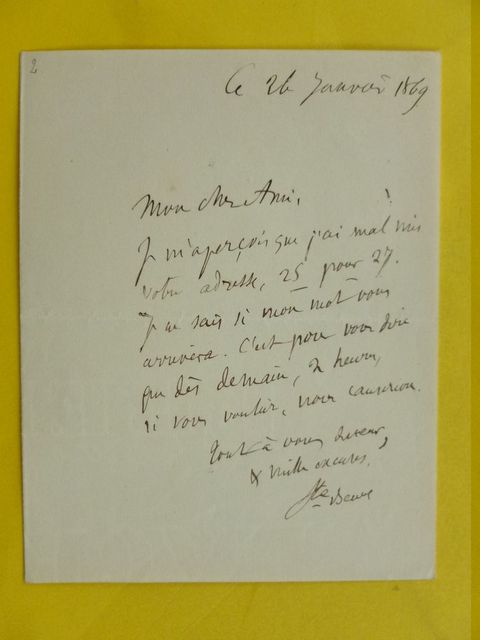 2
Ce 26 Janvier 1869
Mon cher Ami,
Je m'aperçois que j'ai mal mis
votre adresse, 25 pour 27.
Je ne sais si mon mot vous
arrivera. C'est pour vous dire
que dès demain, 2 heures,
si vous voulez, nous causerons.
tout à vous
& mille excuses,
Ste Beuve